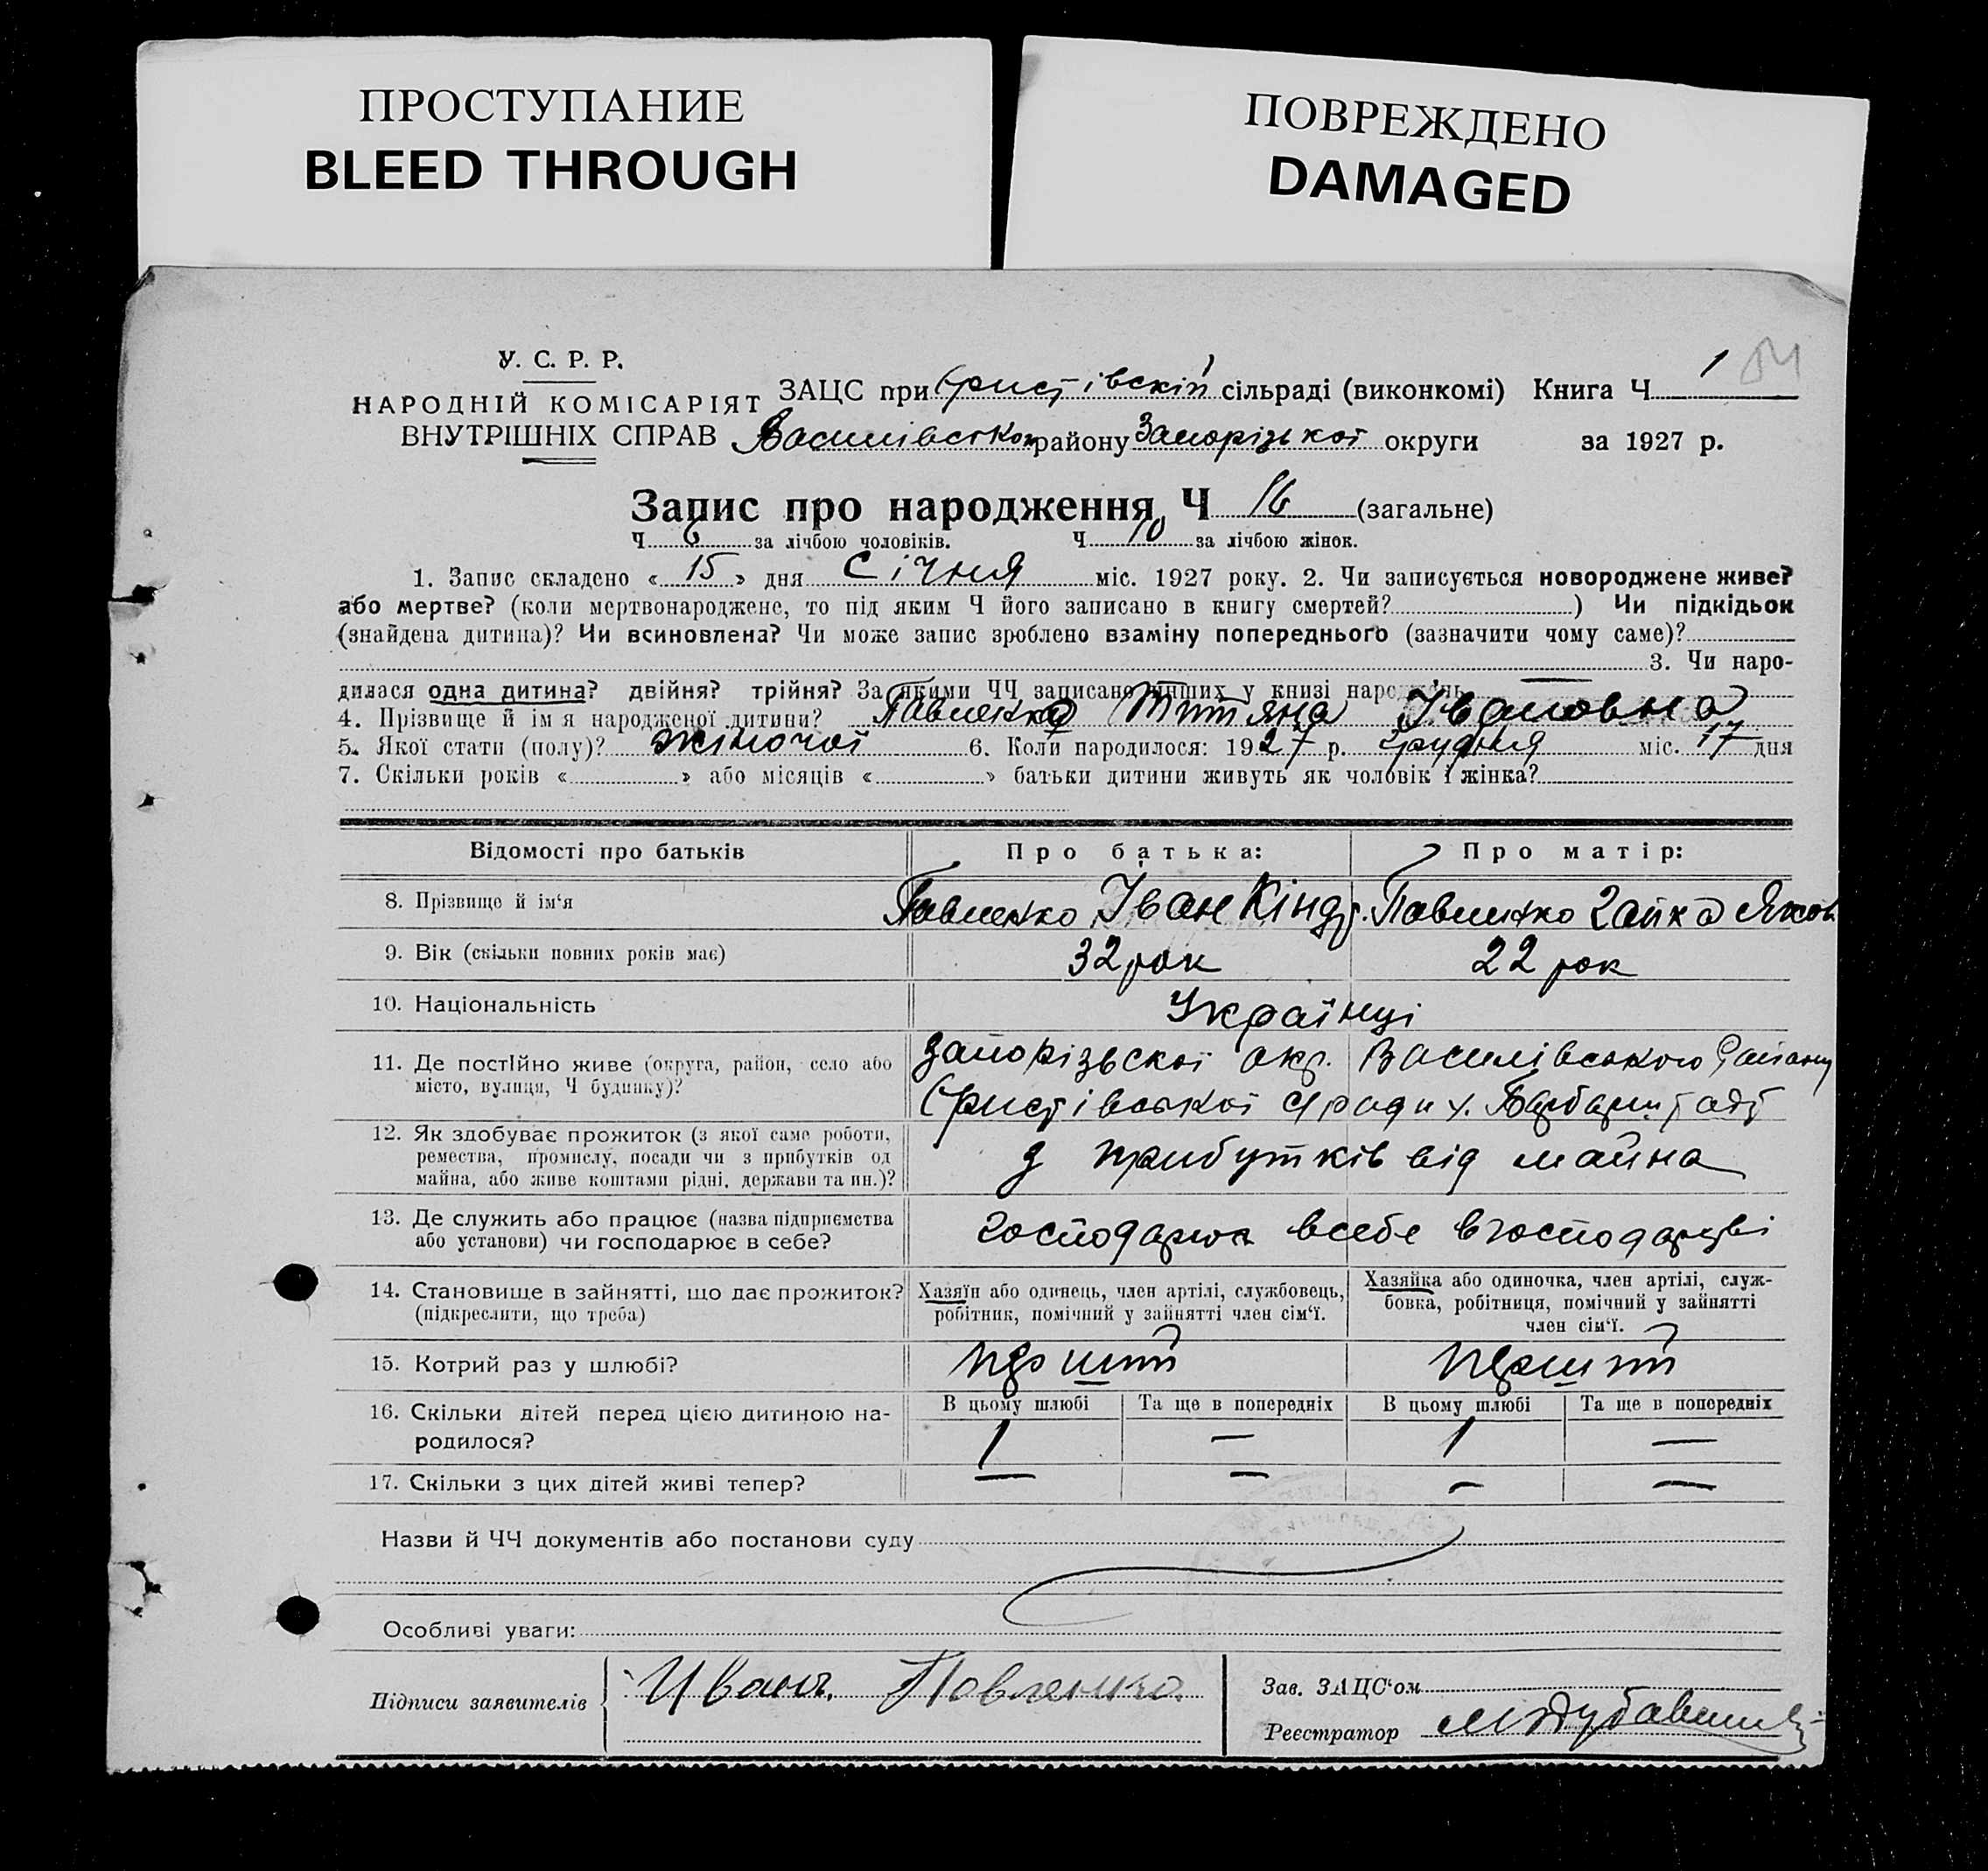 ПРОСТУПАНИЕ
BLEED THROUGH
ПОВРЕЖДЕНО
DAMAGED
У. С. Р. Р.
НАРОДНІЙ КОМІСАРІЯТ
ВНУТРІШНІХ СПРАВ
ЗАЦС при сільраді (виконкомі) Книга Ч 1
району Запорізької округи за 1927 р.
Запис про народження Ч 16 (загальне)
Ч 6 за лічбою чоловіків. Ч 10 за лічбою жінок.
1. Запис складено « 15 » дня Січня міс. 1927 року. 2. Чи записується новороджене живе?
або мертве? (коли мертвонароджене, то під яким Ч його записано в книгу смертей? ) Чи підкідьок
(знайдена дитина)? Чи всиновлена? Чи може запис зроблено взаміну попереднього (зазначити чому саме)?
3. Чи наро-
дилася одна дитина? двійня? трійня? За якими ЧЧ записано инших у книзі народжень
4. Прізвище й ім я народженої дитини? Павленко Івановна
5. Якої стати (полу)? жіночої 6. Коли народилося: 1927 р. грудня міс. 17 дня
7. Скільки років « » або місяців « » батьки дитини живуть як чоловік і жінка?
Відомості про батьків
Про батька:
Про матір:
8. Прізвище й ім'я
Павленко Іван Кіндр.
Павленко Яков
9. Вік (скільки повних років має)
32 рок
22 рок
10. Національність
Українці
11. Де постійно живе (округа, район, село або
місто, вулиця, Ч будинку)?
Запорізьскої окр. Василівського Району
12. Як здобуває прожиток (з якої саме роботи,
ремества, промислу, посади чи з прибутків од
майна, або живе коштами рідні, держави та ин.)?
з прибутків від майна
13. Де служить або працює (назва підприємства
або установи) чи господарює в себе?
всебе
14. Становище в зайнятті, що дає прожиток?
(підкреслити, що треба)
Хазяїн або одинець, член артілі, службовець,
робітник, помічний у зайнятті член сім'ї.
Хазяйка або одиночка, член артілі, служ-
бовка, робітниця, помічний у зайнятті
член сім'ї.
15. Котрий раз у шлюбі?
16. Скільки дітей перед цією дитиною на-
родилося?
В цьому шлюбі
Та ще в попередніх
В цьому шлюбі
Та ще в попередніх
1 — 1 —
17. Скільки з цих дітей живі тепер?
— — — —
Назви й ЧЧ документів або постанови суду
Особливі уваги:
Підписи заявителів
Иванъ Павленко
Зав. ЗАЦС'ом
Реєстратор